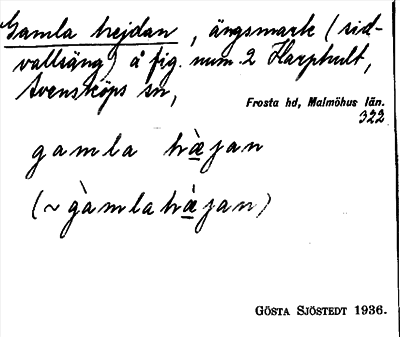 Gamla hejdan, ängsmark (sid-
vallsäng) å fig. num. 2 Harphult,
Svensköps sn,
Frosta hd, Malmöhus län.
322
gamla hæ̀jan
(~ gàmlahæ̀jan)
GÖSTA SJÖSTEDT 1936.